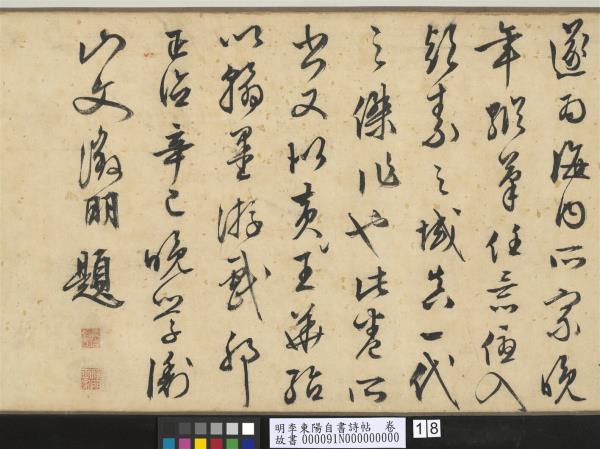 遂為海内所宗晚
年縱筆任意優入
顛素之域真一代
之傑作也此卷所
書又似黃王華殆
以翰墨游戲耶
正德辛巳晚學衡
山文徵明題
明李東陽自書詩帖 卷
故書 000091N000000000
18